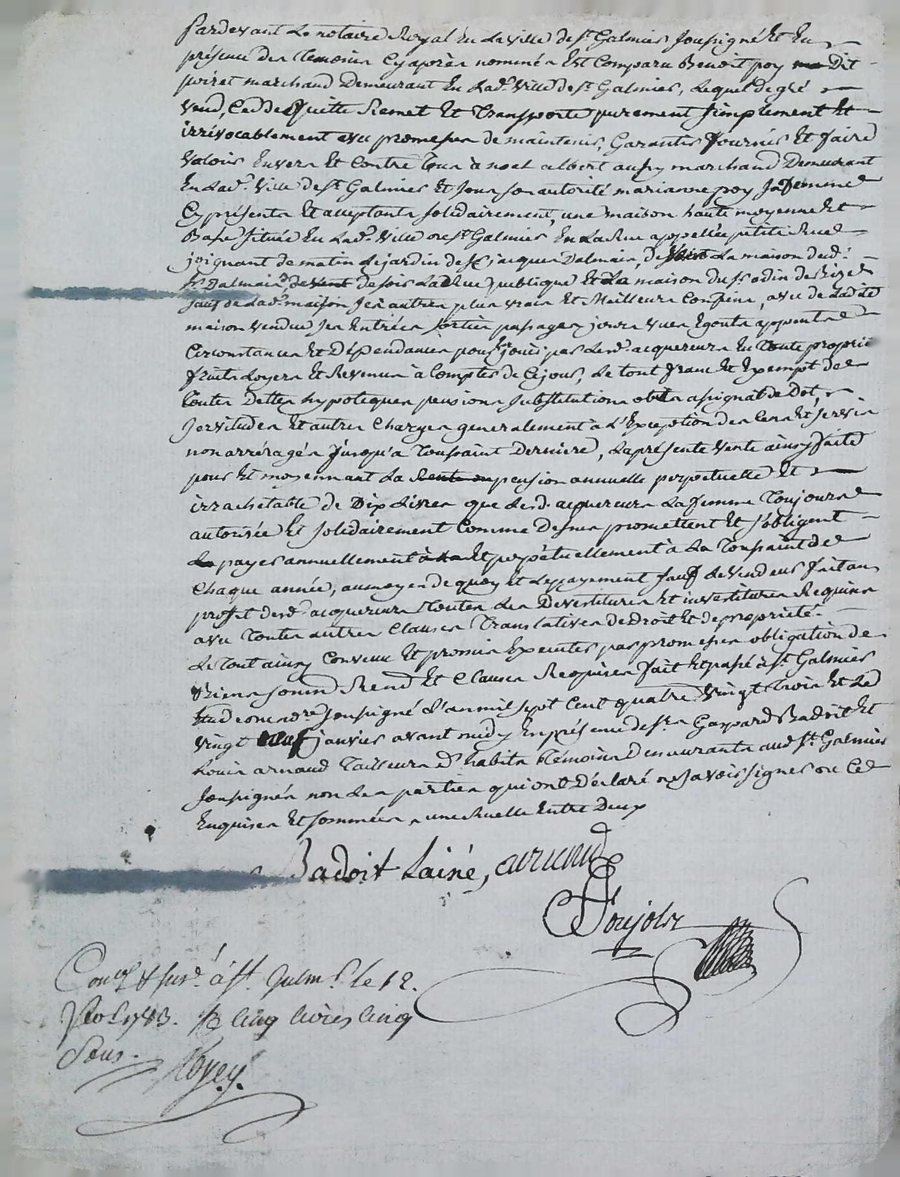 Pardevant Le notaire Royal En La ville de St Galmier soussigné Et En
présence des temoins Cy après nommés Est Comparu Benoit poy dit
poiret marchand Demeurant En Lade. Ville de St Galmier, Lequel de gré
vend, Cedde quitte Remet Et Transporte purement simplement Et
irrévocablement avec promesses de maintenir, Garantir fournir Et faire
valoir Envers Et Contre Tous à noel albert aussy marchand Demeurant
En Lade. Ville de St Galmier Et sous son autorité marianne poy sa femme
Cy présents Et acceptants solidairement, une maison haute moyenne Et
Basse située En Lade. Ville de St Galmier En La Rue appellée petite Rue
joignant de matin Le jardin de Sr jacques Dalmais, de La maison dud.
Sr Dalmais, de vent de soir La de Rue publique Et La maison du Sr odin de Bize
sauf de Lade. maison ses autres plus vrais Et Meilleurs Confins, avec de Ladite
maison vendue ses Entrées sorties passages jours vues Egouts appents
Circonstances Et Dépendances pour jouir par Lesd. acquereurs En Toute proprié
fruits Loyers Et Revenus à Compter de Ce jour, Le tout franc Et Exempt de
Toutes Dettes hypoteques pensions substitutions assignat de Dot,
servitudes Et autres Charges generalement à L'Exception des Cens Et servis
non arréragés jusqu'a Toussaint Derniere, La présente Vente ainsy faite
pour Et moyennant La pension annuelle perpetuelle Et
irrachetable de Dix Livres que Lesd. acquereurs La femme Toujours
autorisée Et solidairement Comme Dessus promettent Et s'obligent
payer annuellement Et perpétuellement à La Toussaint de
Chaque année, au moyen de quoy Et Le payement sauf Le vendeur fait au
proffit desd. acquereurs Toutes Les Devestitures Et investitures Requises
avec Toutes autres Clauses Translatives de Droit Et de propriété.
Le Tout ainsy Convenu Et promis Executer par promesses obligation de
Biens soumd. Rend. Et Clauses Requises fait Et passé à St Galmier
Etude Et nore. soussigné L'an mil sept Cent quatre Vingt trois Et Le
Vingt janvier avant midy En présence de Srs Gaspard Badoit Et
Louis arnaud Tailleurs D'habits Témoins Demeurants aud. St Galmier
soussignés non Les parties qui ont Déclaré ne savoir signer de Ce
Enquises Et sommées, une Ruelle Entre Deux
Badoit Lainé, arnaud
Poujolz
à St. Galmr. le 12.
1783. R cinq livres cinq
Sous.